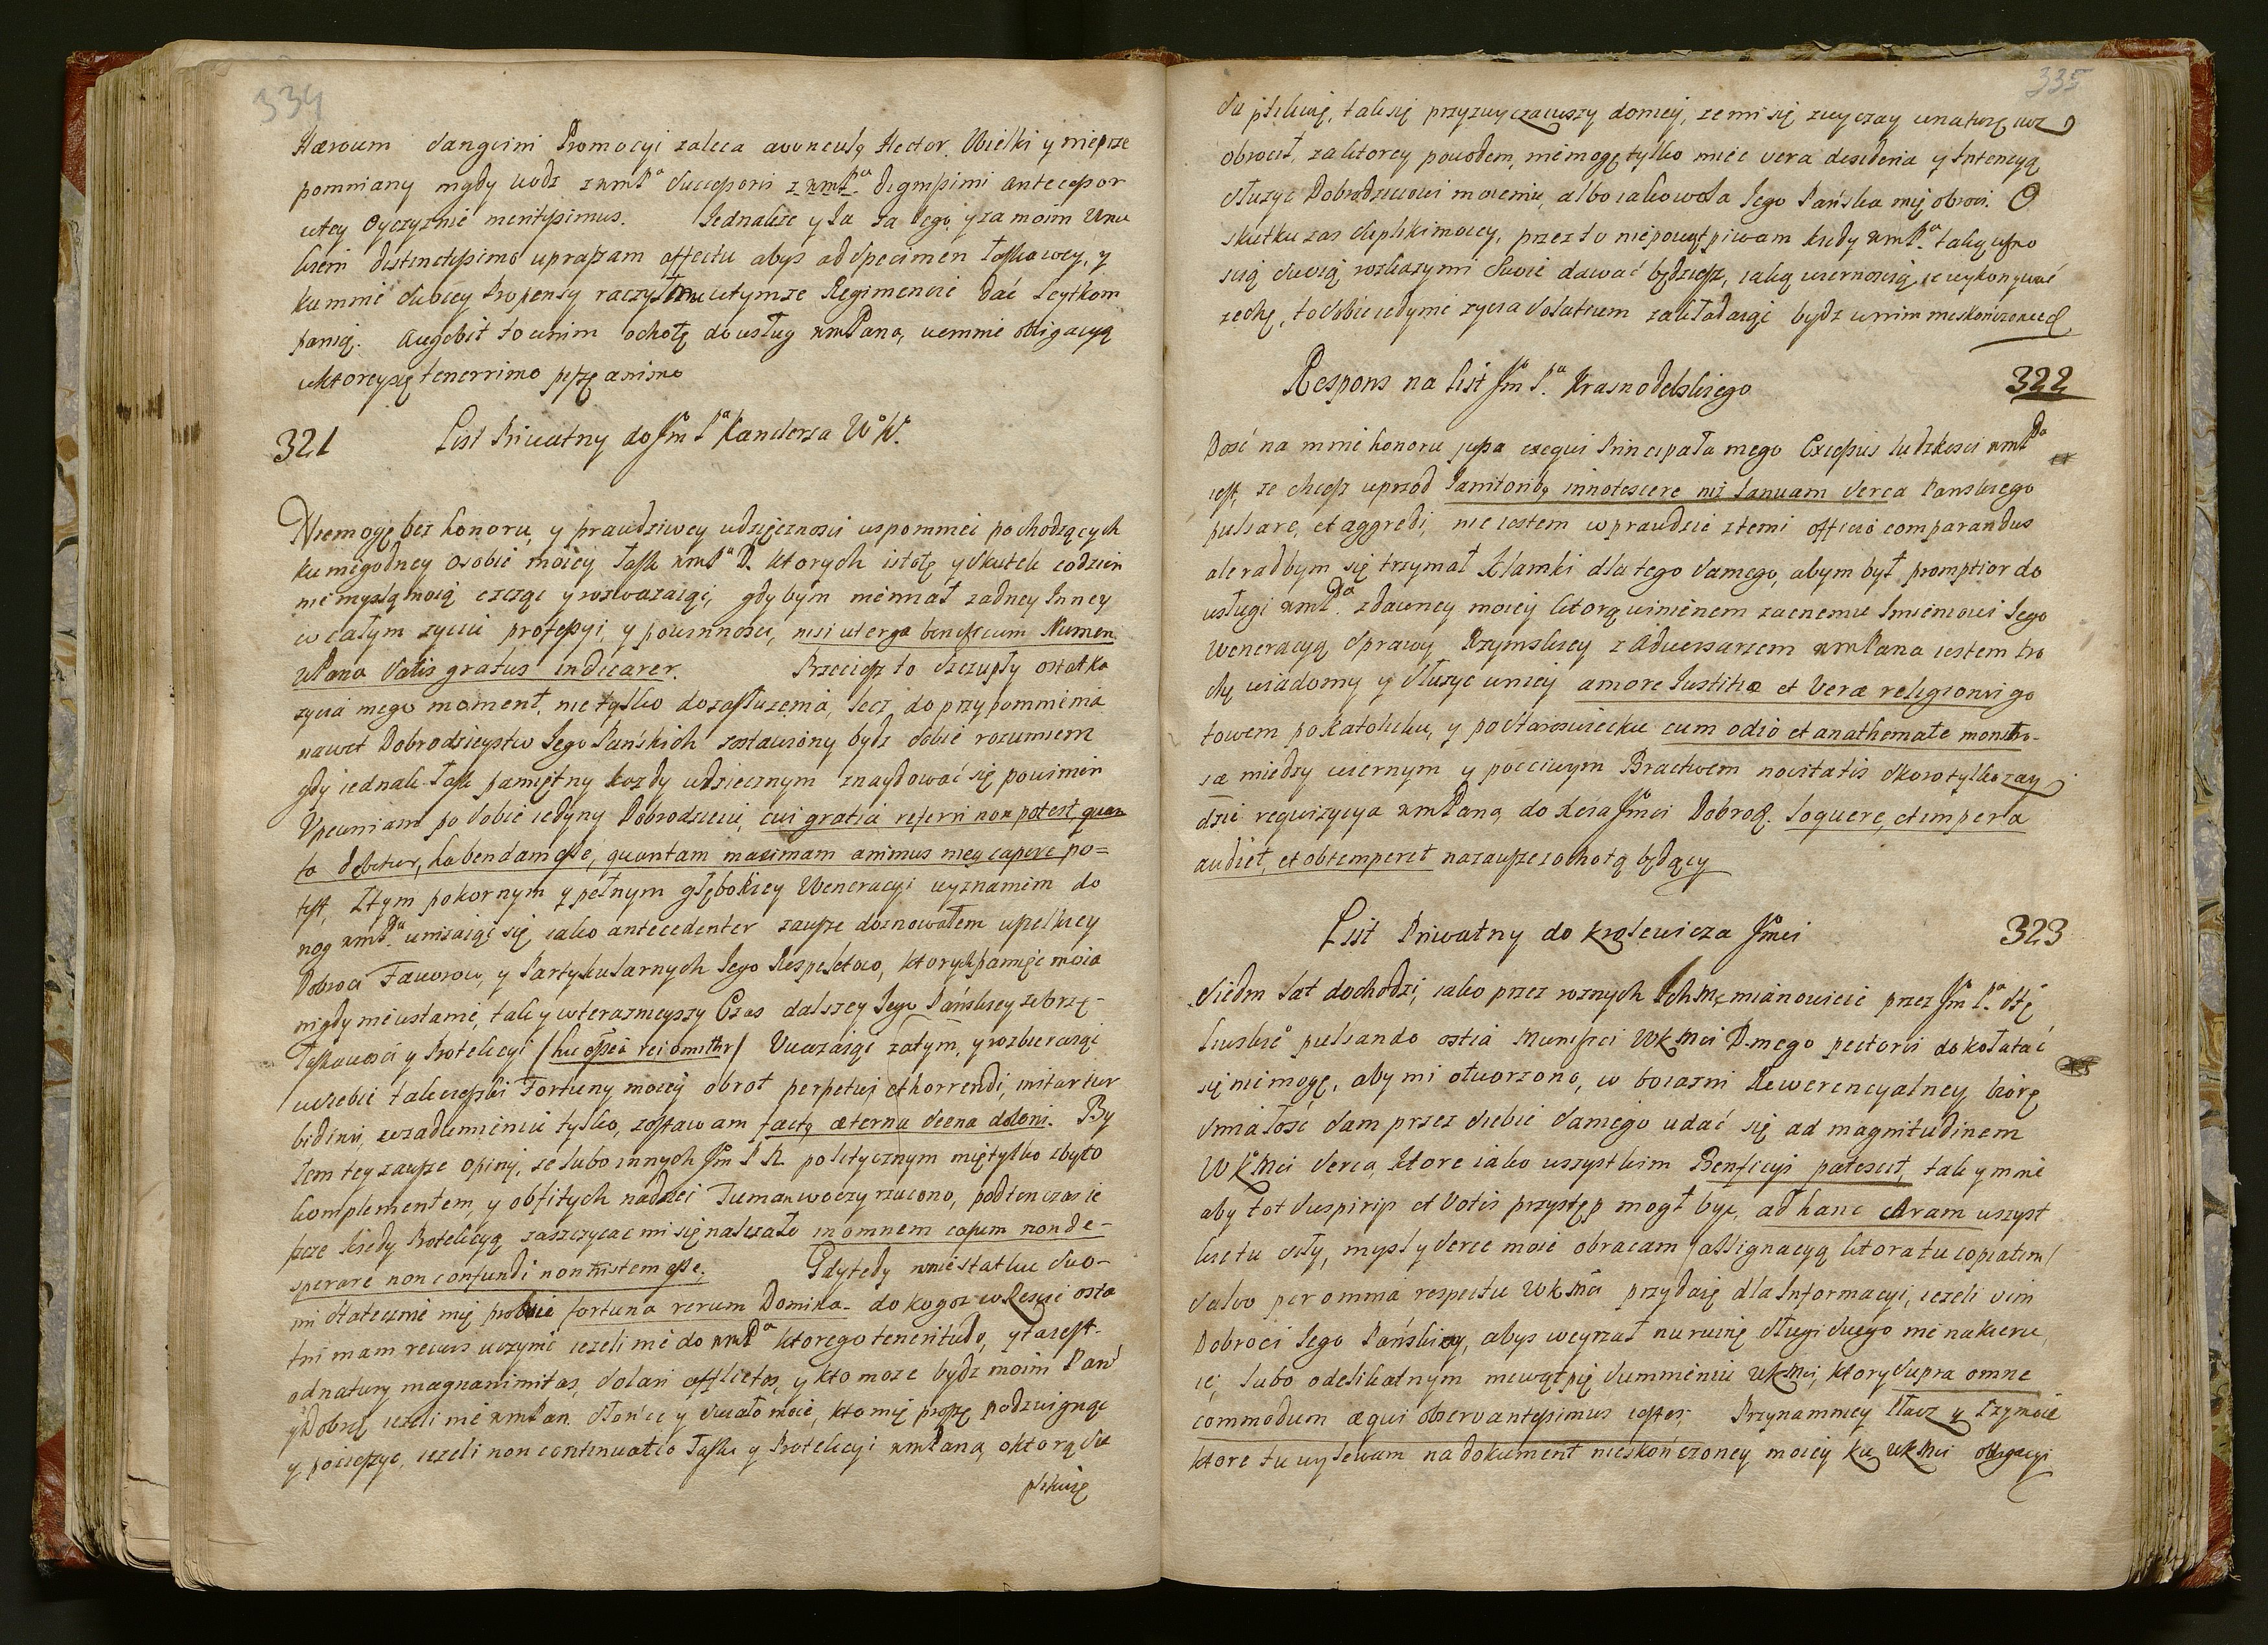 334
Hæroum Sangvini Promocyi zaleca avunculꝯ Hector. Wielki y nieprze
pomniany nigdy wodz z wmPa Successoris z wmPa dignissimi antecessor
wtey Oyczyznie meritissimus. Jednakze y Ja za Jego y za moim Unu
kiem distinctissimo upraszam affectu abys ad specimen łaskawey, y
kumnie Swoiey Propensy raczył mu wtymze Regimencie dać Leytkom
panią. Augebit to wnim ochotę do usług wmPana, wemnie obligacyą
wktoreysię tenerrimo piszę animo
321 List Priwatny do Jm Pa Kanclerza W W.
Niemogę bez honoru, y prawdziwey wdzięcznosci wspomniec pochodzących
ku niegodney osobie moiey łask wmPa D. ktorych istotę y Skutek codzien
nie myslą moią czcząc y rozwazaiąc, gdybym niemiał zadney Inney
w całym zyciu professyi, y powinnosci, nisi ut erga beneficum Numen
WPana Satis gratus indicarer. Przeciesz to Szczupły ostatka
zycia mego moment, nie tylko do zasłuzenia, lecz do przypomnienia
nawet Dobrodzieystw Jego Pańskich zostawiony bydz Sobie rozumiem
gdy iednak łask pamiętny kozdy wdziecznym znaydować się powinien
Upewniam po Sobie iedyny Dobrodzieiu, cui gratia referri non potest quan
ta debetur, habendam esse, quantam maximam animus meꝯ capere po=
test, Ztym pokornym y pełnym głębokiey Weneracyi wyznanim do
nog wmPa unizaiąc się iako antecedenter zawsze doznowałem wpelkiey
Dobroci Faworow, y Partykularnych Jego Respektow, ktorych pamięc moia
nigdy nieustanie, tak y wterazneyszy Czas dalszey Jego Pańskiey zebrzę
łaskawosci y Protekcyi Uwazaiąc zatym, y rozbieraiąc
wsiebie tak cięszki Fortuny moiey obrot perpetui et horrendi, instar tur
bidinis, wzadumieniu tylko, zostawam factꝯ æterna scena doloris. By
łem tey zawsze opinij, ze lubo innych Jm P P. politycznym mię tylko zbyto
komplementem, y obfitych nadziei Tuman w oczy rzucono, podtenczas ie
szcze kiedy Protekcyą zaszczycac mi się nalezało in omnem casum non de-
sperare non confundi non tristem esse. Gdy tedy wniestatku Swo-
im Statecznie mię probuie fortuna rerum Domina do kogoz wReszcie osta
tni mam recurs uczynic iezeli nie do wmPa ktorego teneritudo, y ta iest
od natury magnanimitas, Solari afflictos, y kto moze bydz moim Pan
y Dobrꝯ iezeli nie wmPan. Słońce y Swiatło moie, kto mię proszę podzwignąc
y pocieszyc, iezeli non continuatio łaski y Protekcyi wmPana, o ktorą Su
plikuię
335
Su plikuię, tak się przyzwyczaiwszy doniey, ze mi się zwyczay wnaturę iuz
obrocił, zaktorey powodem, niemogę tylko miec vera desideria y Intencyą
słuzyc Dobrodzieiowi moiemu, albo iako wola Jego Pańska mię obroci. O
skutku zas Supliki moiey, przez to niepowątpiwam kiedy wmPa taką ufno
scią Swoią rozkazymi Swoie dawać będziesz, iaką wiernoscią ie wykonywać
zechę, to Sobie iedyne zycia Solatium zakładaiąc bydz wnim nieskończonie
Respons na List Jm Pa. Krasnodębskiego 322
Dosć na mnie honoru supra exequi Principała mego Excessus ludzkosci wmPa
iest, ze chcesz wprzod Janitoribꝯ innotescere niz Januam Serca Panskiego
pulsare, et aggredi, nie iestem wprawdzie ztemi officio comparandus
ale radbym się trzymał klamki dla tego Samego, abym był promptior do
usługi wmPa zdawney moiey ktorą winienem zacnemu Imieniowi Jego
Weneracyą Sprawy Rzymskiey z Adwersarzem wmPana iestem tro
chę wiadomy y Słuzyc wniey amore Justitiæ et Veræ religionis go
towem pokatoliku, y poStaroswiecku cum odio et anathemate monstro-
sæ miedzy wiernym y poczciwym Bractwem novitatis Skoro tylko zay
dzie requizycya wmPana do Xcia Jmci Dobrod. loquere, et impera
audiet, et obtemperet nazawsze zochotą będący
List Priwatny do Krolewicza Jmci 323
Siedm Lat dochodzi, iako przez roznych Ichmę mianowicie przez Jm Pa. Stę
kulsando ostia Munifici WKMci Pmego pectoris dokołatać
się niemogę, aby mi otworzono, w boiazni Rewerencyalney biorę
Smiałosć Sam przez Siebie Samego udać się ad magnitudinem
WKMci Serca, ktore iako wszystkim Beneficyi patescit, tak y mnie
aby tot Suspiriis et Votis przystęp mogł byc, ad hanc Aram wszyst
kie tu siły, mysl y Serce moie obracam /assignacyą ktora tu copiatim/
Salvo per omnia respectu WKMci przydaię dla Informacyi, iezeli vim
Dobroci Jego Pańskiey, abys weyrzał na ruinę Sługi Swego nienakieru
ię, lubo odelikatnym niewątpię Sumnieniu WKMci, ktory Supra omne
commodum æqui observantissimus iestes; Przynamniey Płacz y Łzy moie
ktore tu wylewam na dokument nieskończoney moiey ku WKMci obligacyi